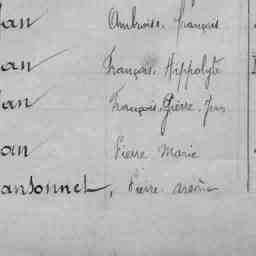 an Ambroise. François
an François. Hippolyte
an François. Pierre. Jean
an Pierre Marie
ansonnet, Pierre